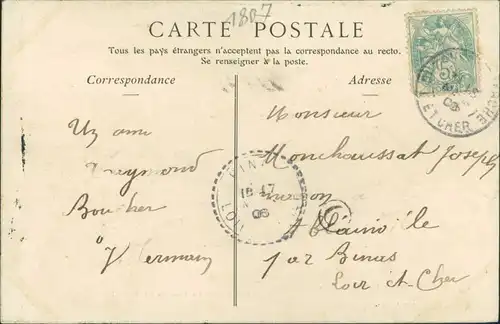 1807
CARTE POSTALE
Tous les pays étrangers n'acceptent pas la correspondance au recto.
Se renseigner à la poste.
Correspondance
Adresse
Un ami
Raymond
Boucher
Vermain
Monsieur
Monchaussat Joseph
par Binas
Loir et Cher
ET CHER
BINAS
18 17
06
LOIR